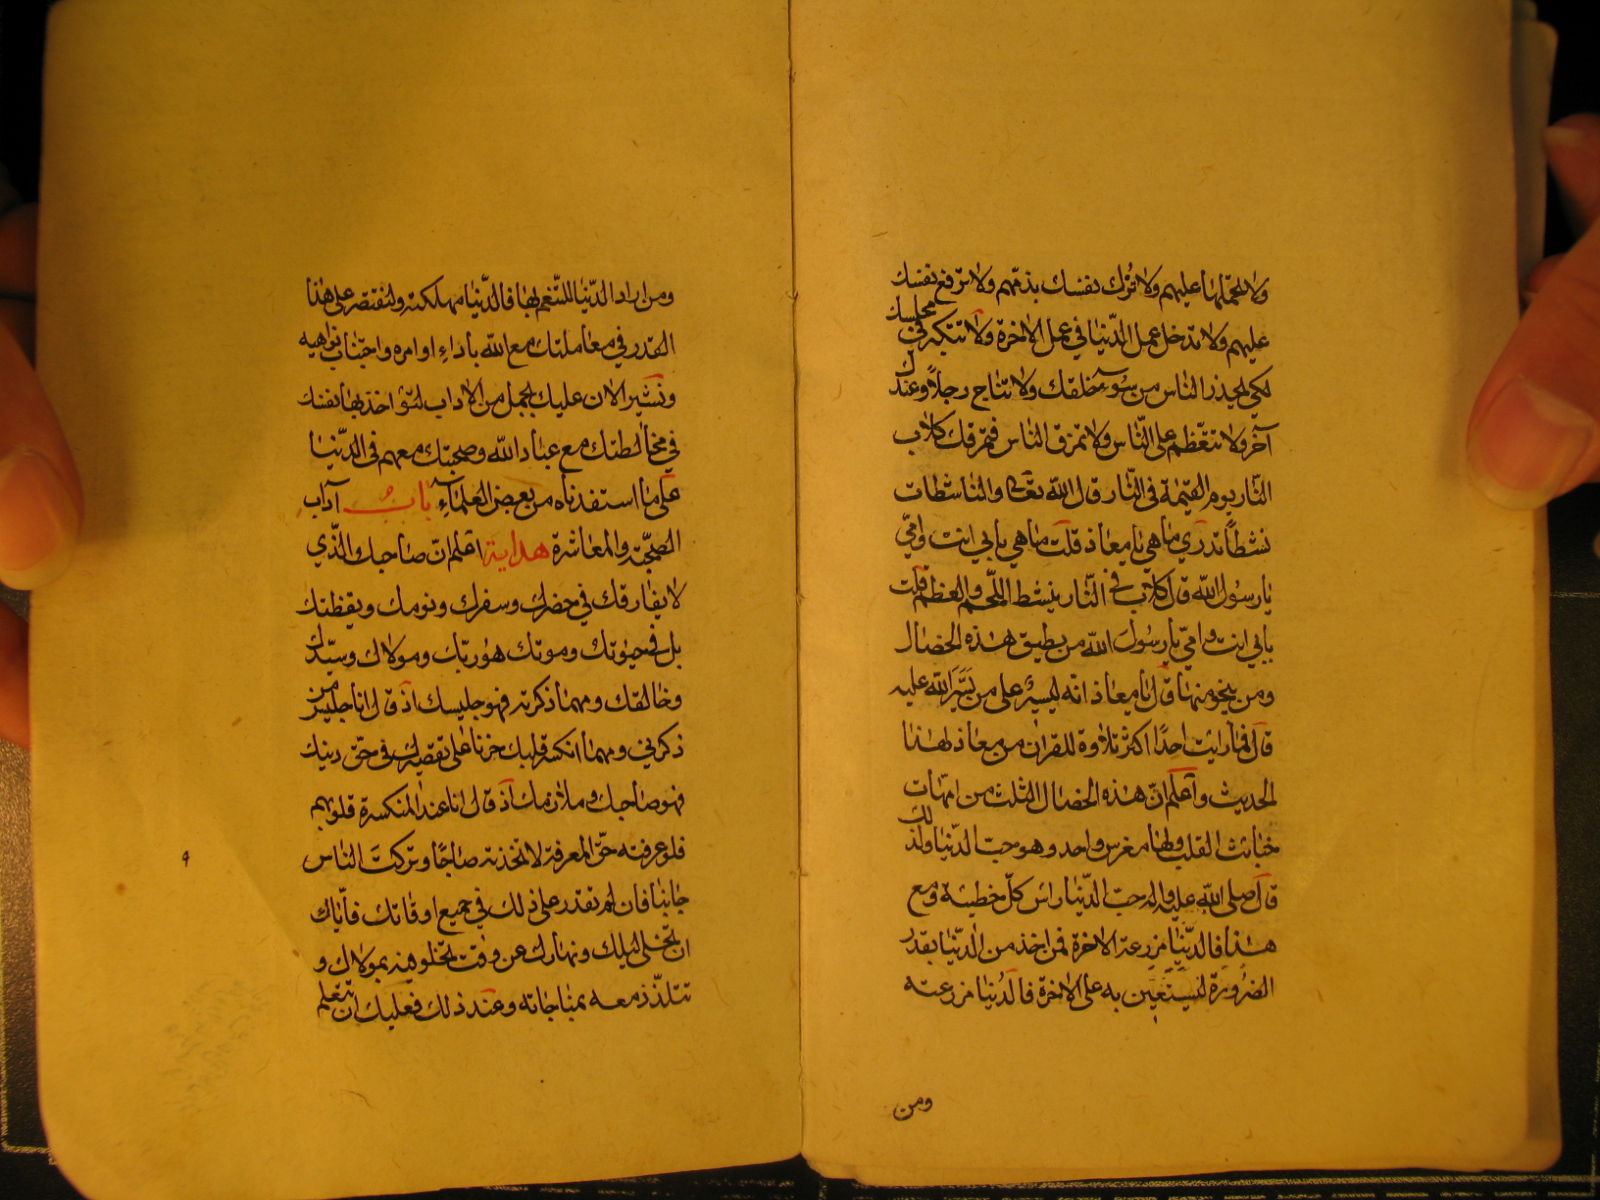 ولا تحملها عليهم ولا تزك نفسك بذمهم ولا ترفع نفسك
عليهم ولا تدخل عمل الدنيا في عمل الاخرة ولا تتكبر في مجلسك
لكي يحذر الناس من سوء خلقك ولا تناج رجلا وعندك
آخر ولا تتعظم على الناس ولا تمزق الناس فتمزقك كلاب
النار يوم القيمة في النار قال الله تعالى والناشطات
نشطا تدري ما هي يا معاذ قلت ما هي بابي انت وامي
يا رسول الله قال كلاب في النار ينشط اللحم والعظم قلت
بابي انت وامي يا رسول الله من يطيق هذه الخصال
ومن ينجو منها قال يا معاذ انه ليسير على من يسر الله عليه
قال فما رايت احدا اكثر تلاوة للقران من معاذ لهذا
الحديث واعلم ان هذه الخصال الثلث من امهات
خبائث القلب ولها مغرس واحد وهو حب الدنيا ولذلك
قال صلى الله عليه واله حب الدنيا راس كل خطيئة ومع
هذا فالدنيا مزرعة الاخرة فمن اخذ من الدنيا بقدر
الضرورة ليستعين به على الاخرة فالدنيا مزرعته
ومن
ومن اراد الدنيا للتنعم بها فالدنيا مهلكته ولنقتصر على هذا
القدر في معاملتك مع الله باداء اوامره واجتناب نواهيه
ونشير الان عليك بجمل من الاداب لتؤاخذ بها نفسك
في مخالطتك مع عباد الله وصحبتك معهم في الدنيا
على ما استفدناه من بعض العلماء باب آداب
الصحبة والمعاشرة هداية اعلم ان صاحبك الذي
لا يفارقك في حضرك وسفرك ونومك ويقظتك
بل في حيوتك وموتك هو ربك ومولاك وسيدك
وخالقك ومهما ذكرته فهو جليسك اذ قال انا جليس من
ذكرني ومهما انكسر قلبك حزنا على تقصيرك في حق دينك
فهو صاحبك وملازمك اذ قال انا عند المنكسرة قلوبهم
فلو عرفته حق المعرفة لاتخذته صاحبا وتركت الناس
جانبا فان لم تقدر على ذلك في جميع اوقاتك فاياك
ان تخلى ليلك ونهارك عن وقت تخلو فيه بمولاك و
تتلذذ معه بمناجاته وعند ذلك فعليك ان تتعلم
٩